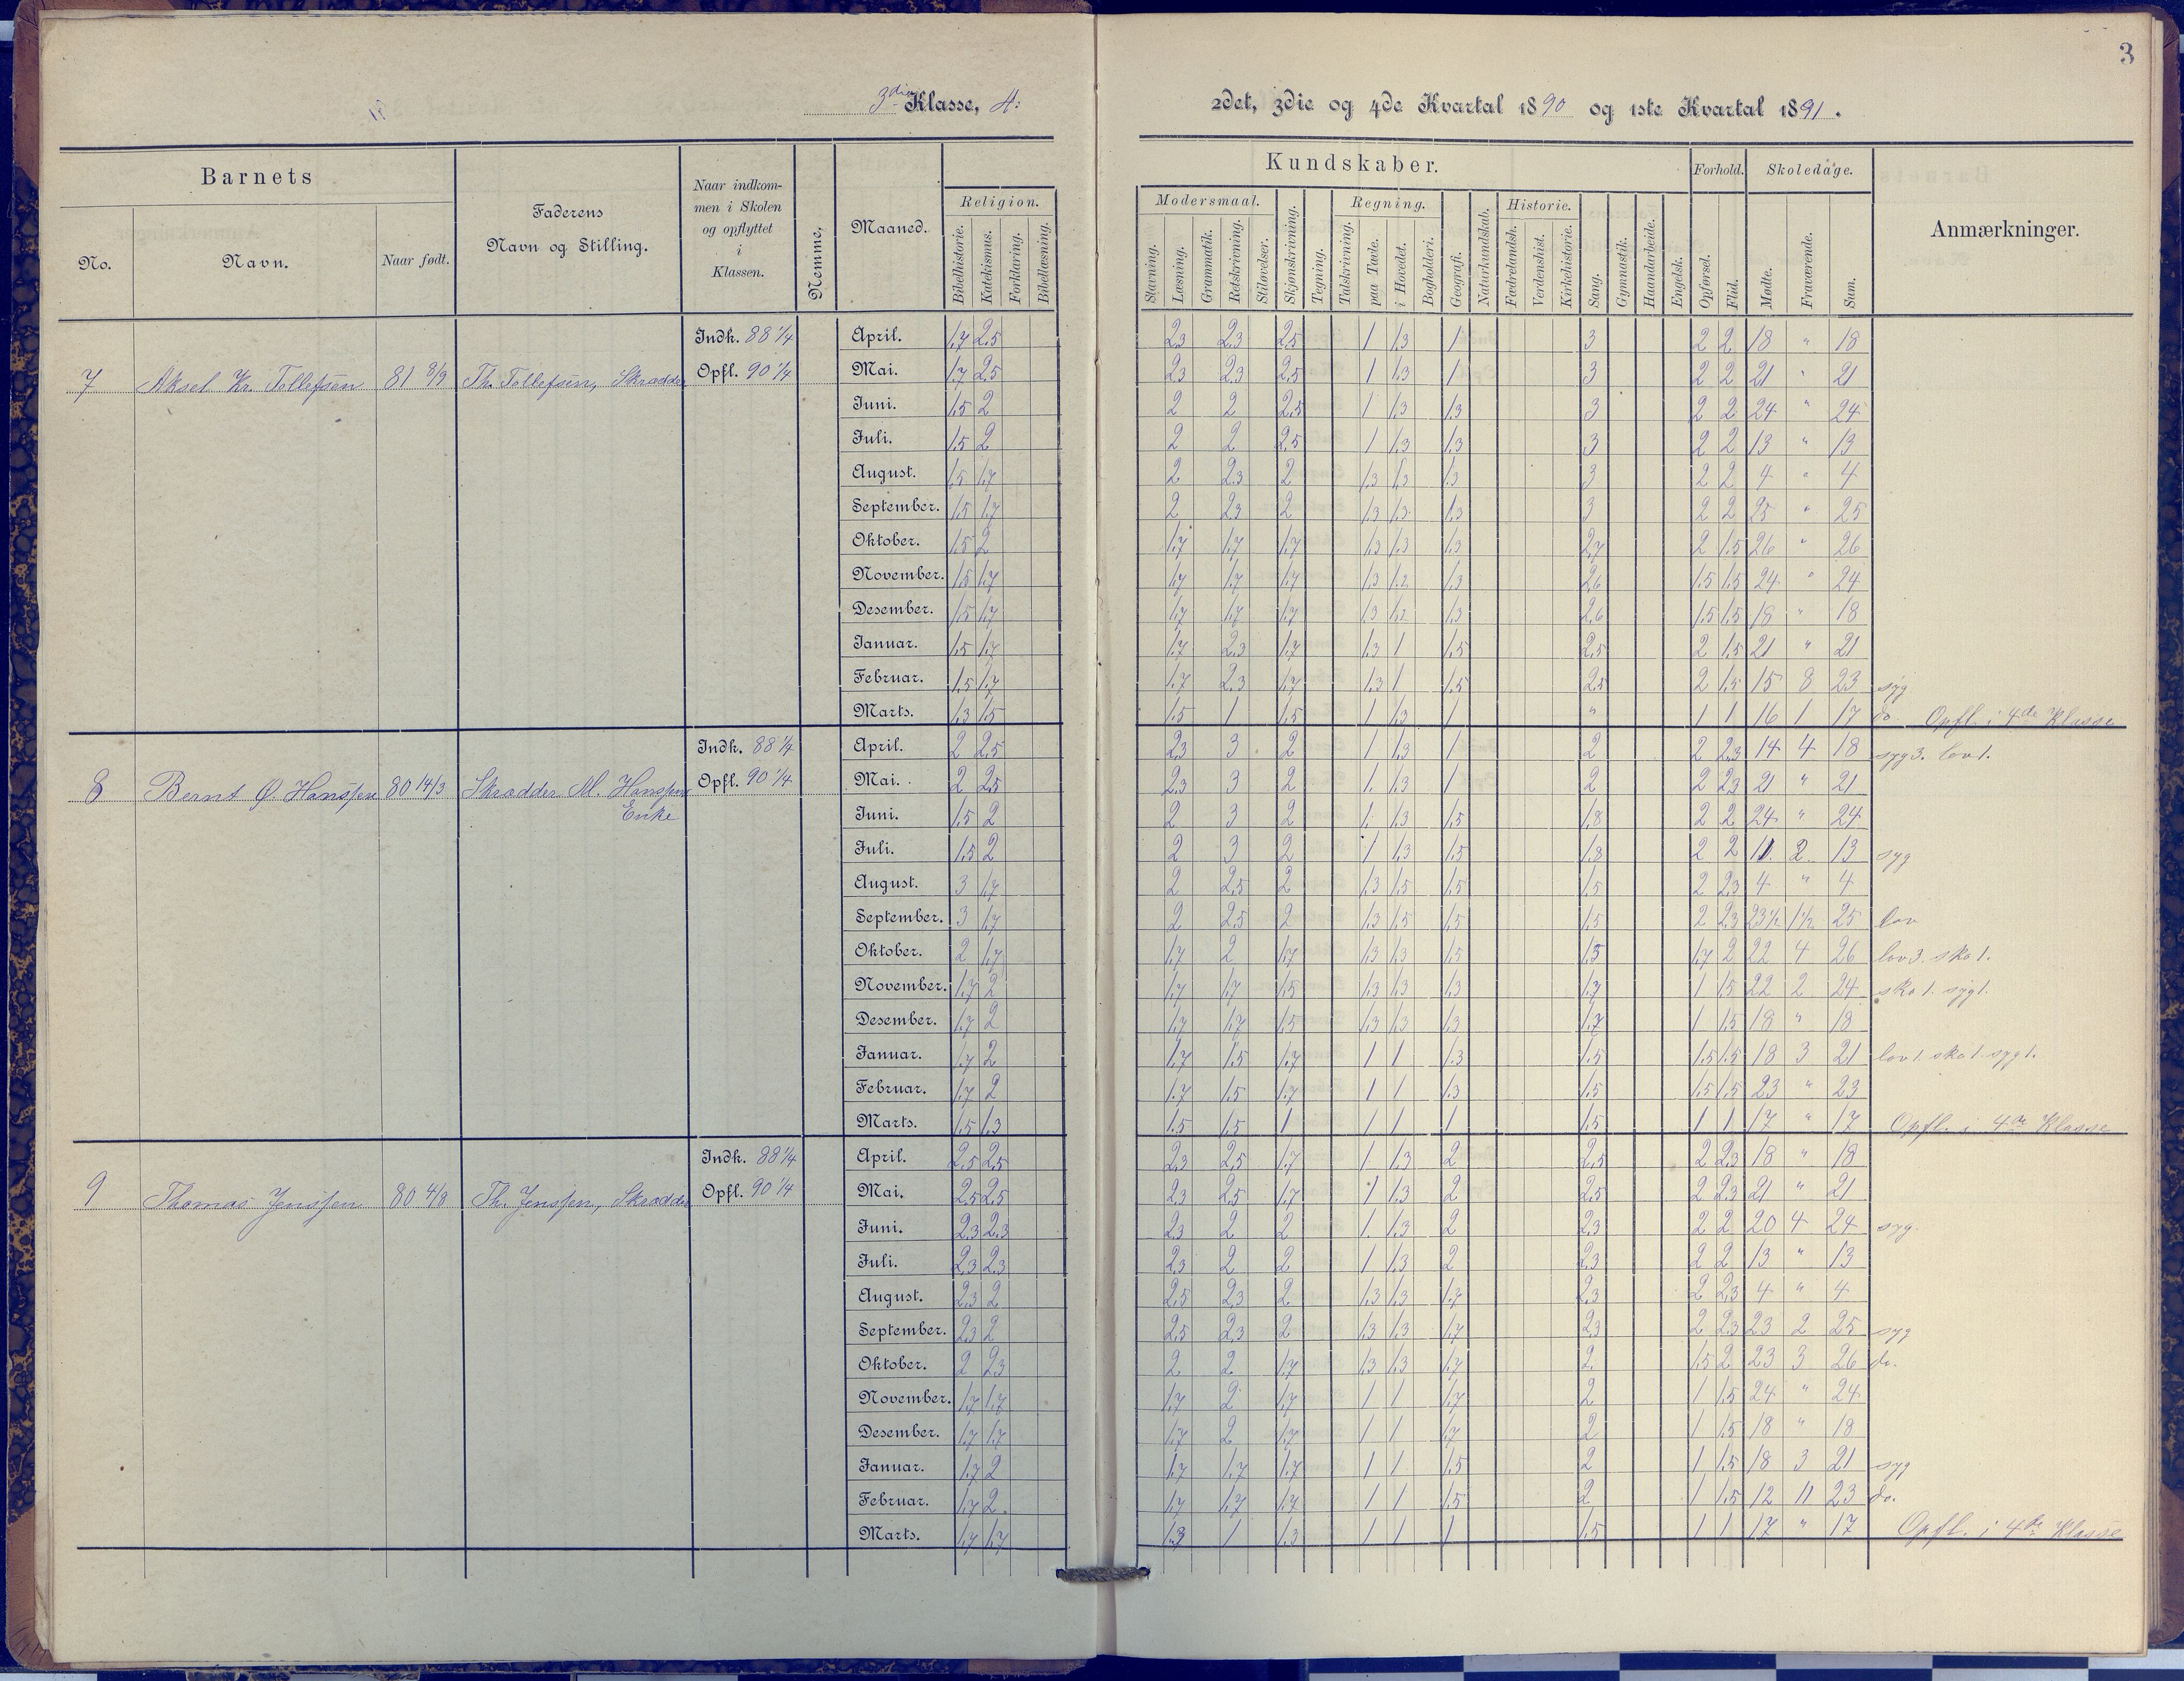 3
3die Klasse, A:
2det, 3die og 4de Kvartal 1890 og 1ste Kvartal 1891.
Barnets
No.
Navn.
Naar født.
Faderens
Navn og Stilling.
Naar indkom-
men i Skolen
og opflyttet
i
Klassen.
Nemme,
Maaned.
Religion.
Bibelhistorie.
Katekismus.
Forklaring.
Bibellæsning.
Kundskaber.
Modersmaal.
Stavning.
Læsning.
Grammatik.
Retskrivning.
Stiløvelser.
Skjønskrivning.
Tegning.
Regning.
Talskrivning.
paa Tavle.
i Hovedet.
Bogholderi.
Geografi.
Naturkundskab.
Historie.
Fædrelandsh.
Verdenshist.
Kirkehistorie.
Sang.
Gymnastik.
Haandarbeide.
Engelsk.
Forhold.
Opførsel.
Flid.
Skoledage.
Mødte.
Fraværende.
Sum.
Anmærkninger.
7 Aksel Kr. Tellefsen 81 8/9 Th. Tellefsen, Skrædder
Indk. 88 1/4
Opfl. 90 1/4
April. 1,7 2,5 2,3 2,3 2,5 1 1,3 1 3 2 2 18 " 18
Mai. 1,7 2,5 2,3 2,3 2,5 1 1,3 1 3 2 2 21 " 21
Juni. 1,5 2 2 2 2,5 1 1,3 1,3 3 2 2 24 " 24
Juli. 1,5 2 2 2 2,5 1 1,3 1,3 3 2 2 13 " 13
August. 1,5 1,7 2 2,3 2 1,3 1,3 1,3 3 2 2 4 " 4
September. 1,5 1,7 2 2,3 2 1,3 1,3 1,3 3 2 2 25 " 25
Oktober. 1,5 2 1,7 1,7 1,7 1,3 1,3 1,3 2,7 2 1,5 26 " 26
November. 1,5 1,7 1,7 1,7 1,7 1,3 1,2 1,3 2,6 1,5 1,5 24 " 24
Desember. 1,5 1,7 1,7 1,7 1,7 1,3 1,2 1,3 2,6 1,5 1,5 18 " 18
Januar. 1,5 1,7 1,7 2,3 1,7 1,3 1 1,5 2,5 2 1,5 21 " 21
Februar. 1,5 1,7 1,7 2,3 1,7 1,3 1 1,5 2,5 2 1,5 15 8 23 syg
Marts. 1,3 1,5 1,5 1 1,5 1 1,3 1 " 1 1 16 1 17 do Opfl. i 4de Klasse
8 Bernt Ø. Hanssen 80 14/3 Skrædder M. Hanssens
Enke
Indk. 88 1/4
Opfl. 90 1/4
April. 2 2,5 2,3 3 2 1 1,3 1 2 2 2,3 14 4 18 syg 3. lov 1.
Mai. 2 2,5 2,3 3 2 1 1,3 1 2 2 2,3 21 " 21
Juni. 1,5 2 2 3 2 1 1,3 1,5 1,8 2 2 24 " 24
Juli. 1,5 2 2 3 2 1 1,3 1,5 1,8 2 2 11 2 13 syg
August. 3 1,7 2 2,5 2 1,3 1,5 1,5 1,5 2 2,3 4 " 4
September. 3 1,7 2 2,5 2 1,3 1,5 1,5 1,5 2 2,3 23 1/2 1 1/2 25 lov
Oktober. 2 1,7 1,7 2 1,7 1,3 1,3 1,5 1,5 1,7 2 22 4 26 lov 3. sko 1.
November. 1,7 2 1,7 1,7 1,5 1,3 1,3 1,3 1,7 1 1,5 22 2 24 sko 1. syg 1.
Desember. 1,7 2 1,7 1,7 1,5 1,3 1,3 1,3 1,7 1 1,5 18 " 18
Januar. 1,7 2 1,7 1,5 1,7 1 1 1,3 1,5 1,5 1,5 18 3 21 lov 1. sko 1. syg 1.
Februar. 1,7 2 1,7 1,5 1,7 1 1 1,3 1,5 1,5 1,5 23 " 23
Marts. 1,5 1,3 1,5 1,5 1 1 1 1 1,5 1 1 17 " 17 Opfl. i 4de Klasse
9 Thomas Jenssen 80 4/8 Th. Jenssen, Skrædder
Indk. 88 1/4
Opfl. 90 1/4
April. 2,5 2,5 2,3 2,5 1,7 1 1,3 2 2,5 2 2,3 18 " 18
Mai. 2,5 2,5 2,3 2,5 1,7 1 1,3 2 2,5 2 2,3 21 " 21
Juni. 2,3 2,3 2,3 2 2 1 1,3 2 2,3 2 2 20 4 24 syg
Juli. 2,3 2,3 2,3 2 2 1 1,3 2 2,3 2 2 13 " 13
August. 2,3 2 2,5 2,3 2 1,3 1,3 1,7 2,3 2 2,3 4 " 4
September. 2,3 2 2,5 2,3 2 1,3 1,3 1,7 2,3 2 2,3 23 2 25 syg
Oktober. 2 2,3 2 2 1,7 1,3 1,3 1,7 2 1,5 2 23 3 26 do.
November. 1,7 1,7 1,7 2 1,7 1 1 1,7 2 1 1,5 24 " 24
Desember. 1,7 1,7 1,7 2 1,7 1 1 1,7 2 1 1,5 18 " 18
Januar. 1,7 2 1,7 1,7 1,7 1 1 1,5 2 1 1,5 18 3 21 syg
Februar. 1,7 2 1,7 1,7 1,7 1 1 1,5 2 1 1,5 12 11 23 do.
Marts. 1,7 1,7 1,3 1 1,3 1 1 1 1,5 1 1 17 " 17 Opfl. i 4de Klasse